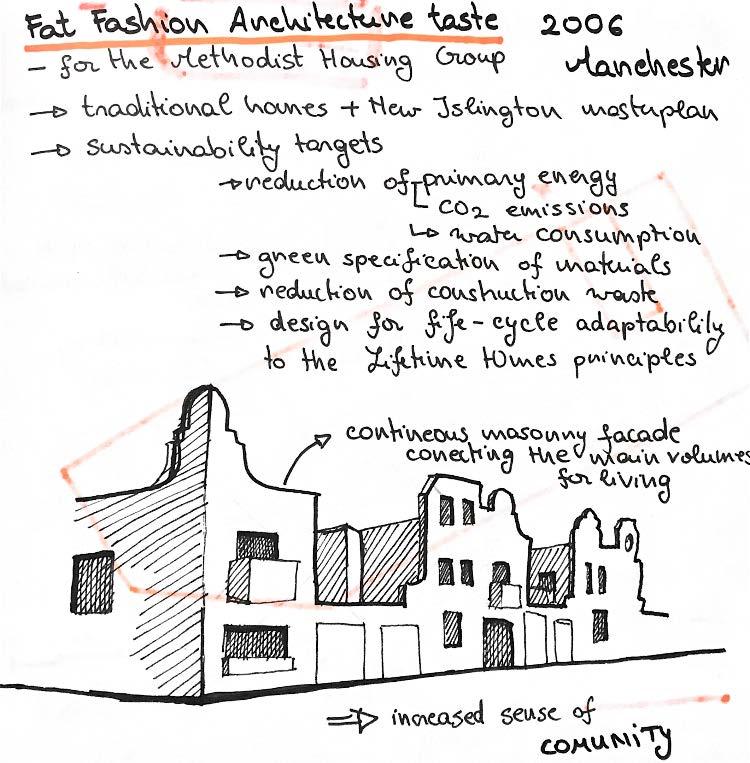 Fat Fashion Architecture taste 2006
- for the Methodist Housing Group Manchester
→ traditional homes + New Islington masterplan
→ sustainability targets
→ reduction of primary energy
CO2 emissions
↳ water consumption
→ green specification of materials
→ reduction of construction waste
→ design for fife-cycle adaptability
to the Lifetime Homes principles
contineous masonry facade
conecting the main volumes
for living
⇒ increased sense of
COMUNITY